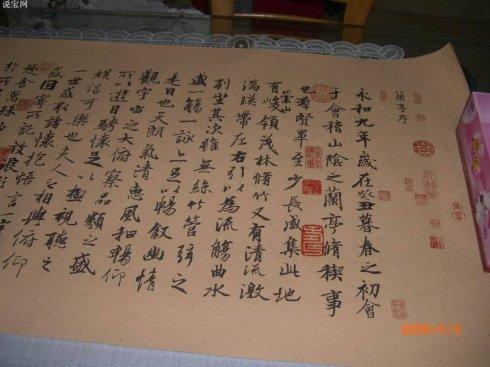 说宝网
蘭亭序
永和九年歲在癸丑暮春之初會
于會稽山陰之蘭亭脩稧事
也羣賢畢至少長咸集此地
有崇山峻領茂林脩竹又有清流激
湍暎帶左右引以為流觴曲水
列坐其次雖無絲竹管弦之
盛一觴一詠亦足以暢敘幽情
是日也天朗氣清惠風和暢仰
觀宇宙之大俯察品類之盛
所以遊目騁懷足以極視聽之
娛信可樂也夫人之相與俯仰
世或取諸懷抱悟言一
或因寄所託放浪